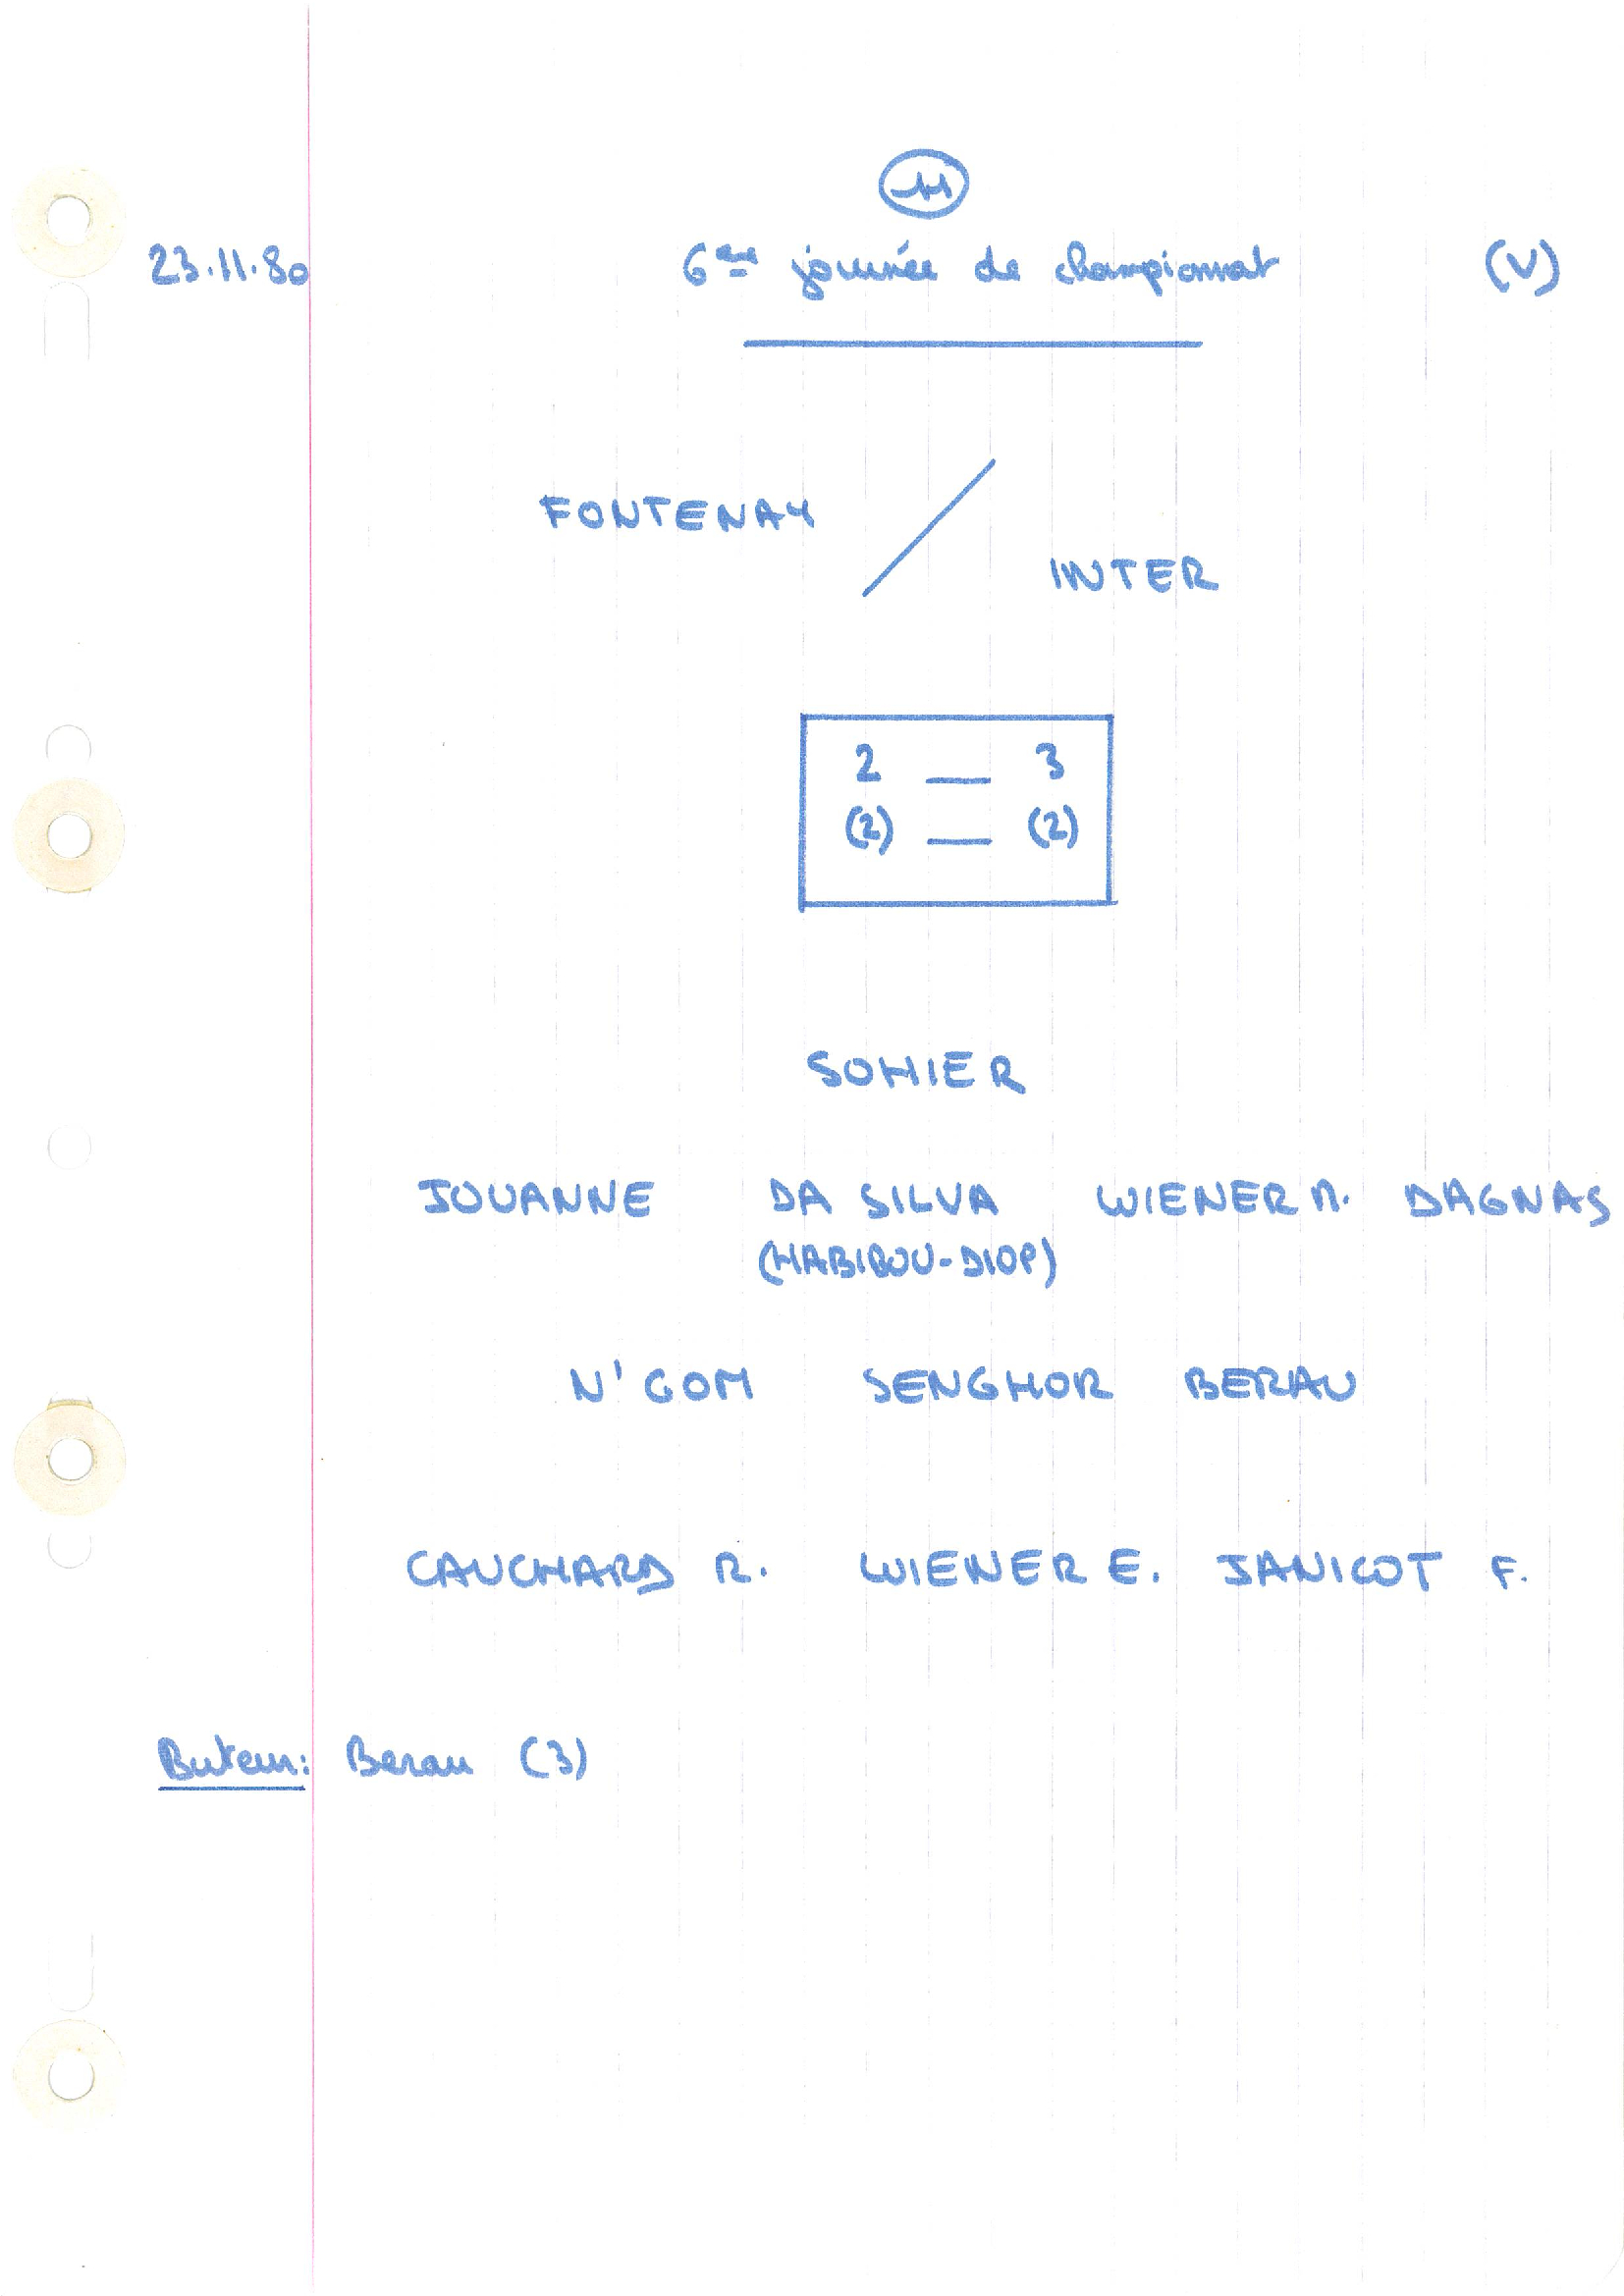 11
23.11.80 6ème journée de championnat (V)
FONTENAY /
INTER
2 — 3
(2) — (2)
SOHIER
JOUANNE DA SILVA WIENER M. DAGNAS
(HABIBOU-DIOP)
N'GOM SENGHOR BERAU
CAUCHARD R. WIENER E. JANICOT F.
Buteur: Berau (3)